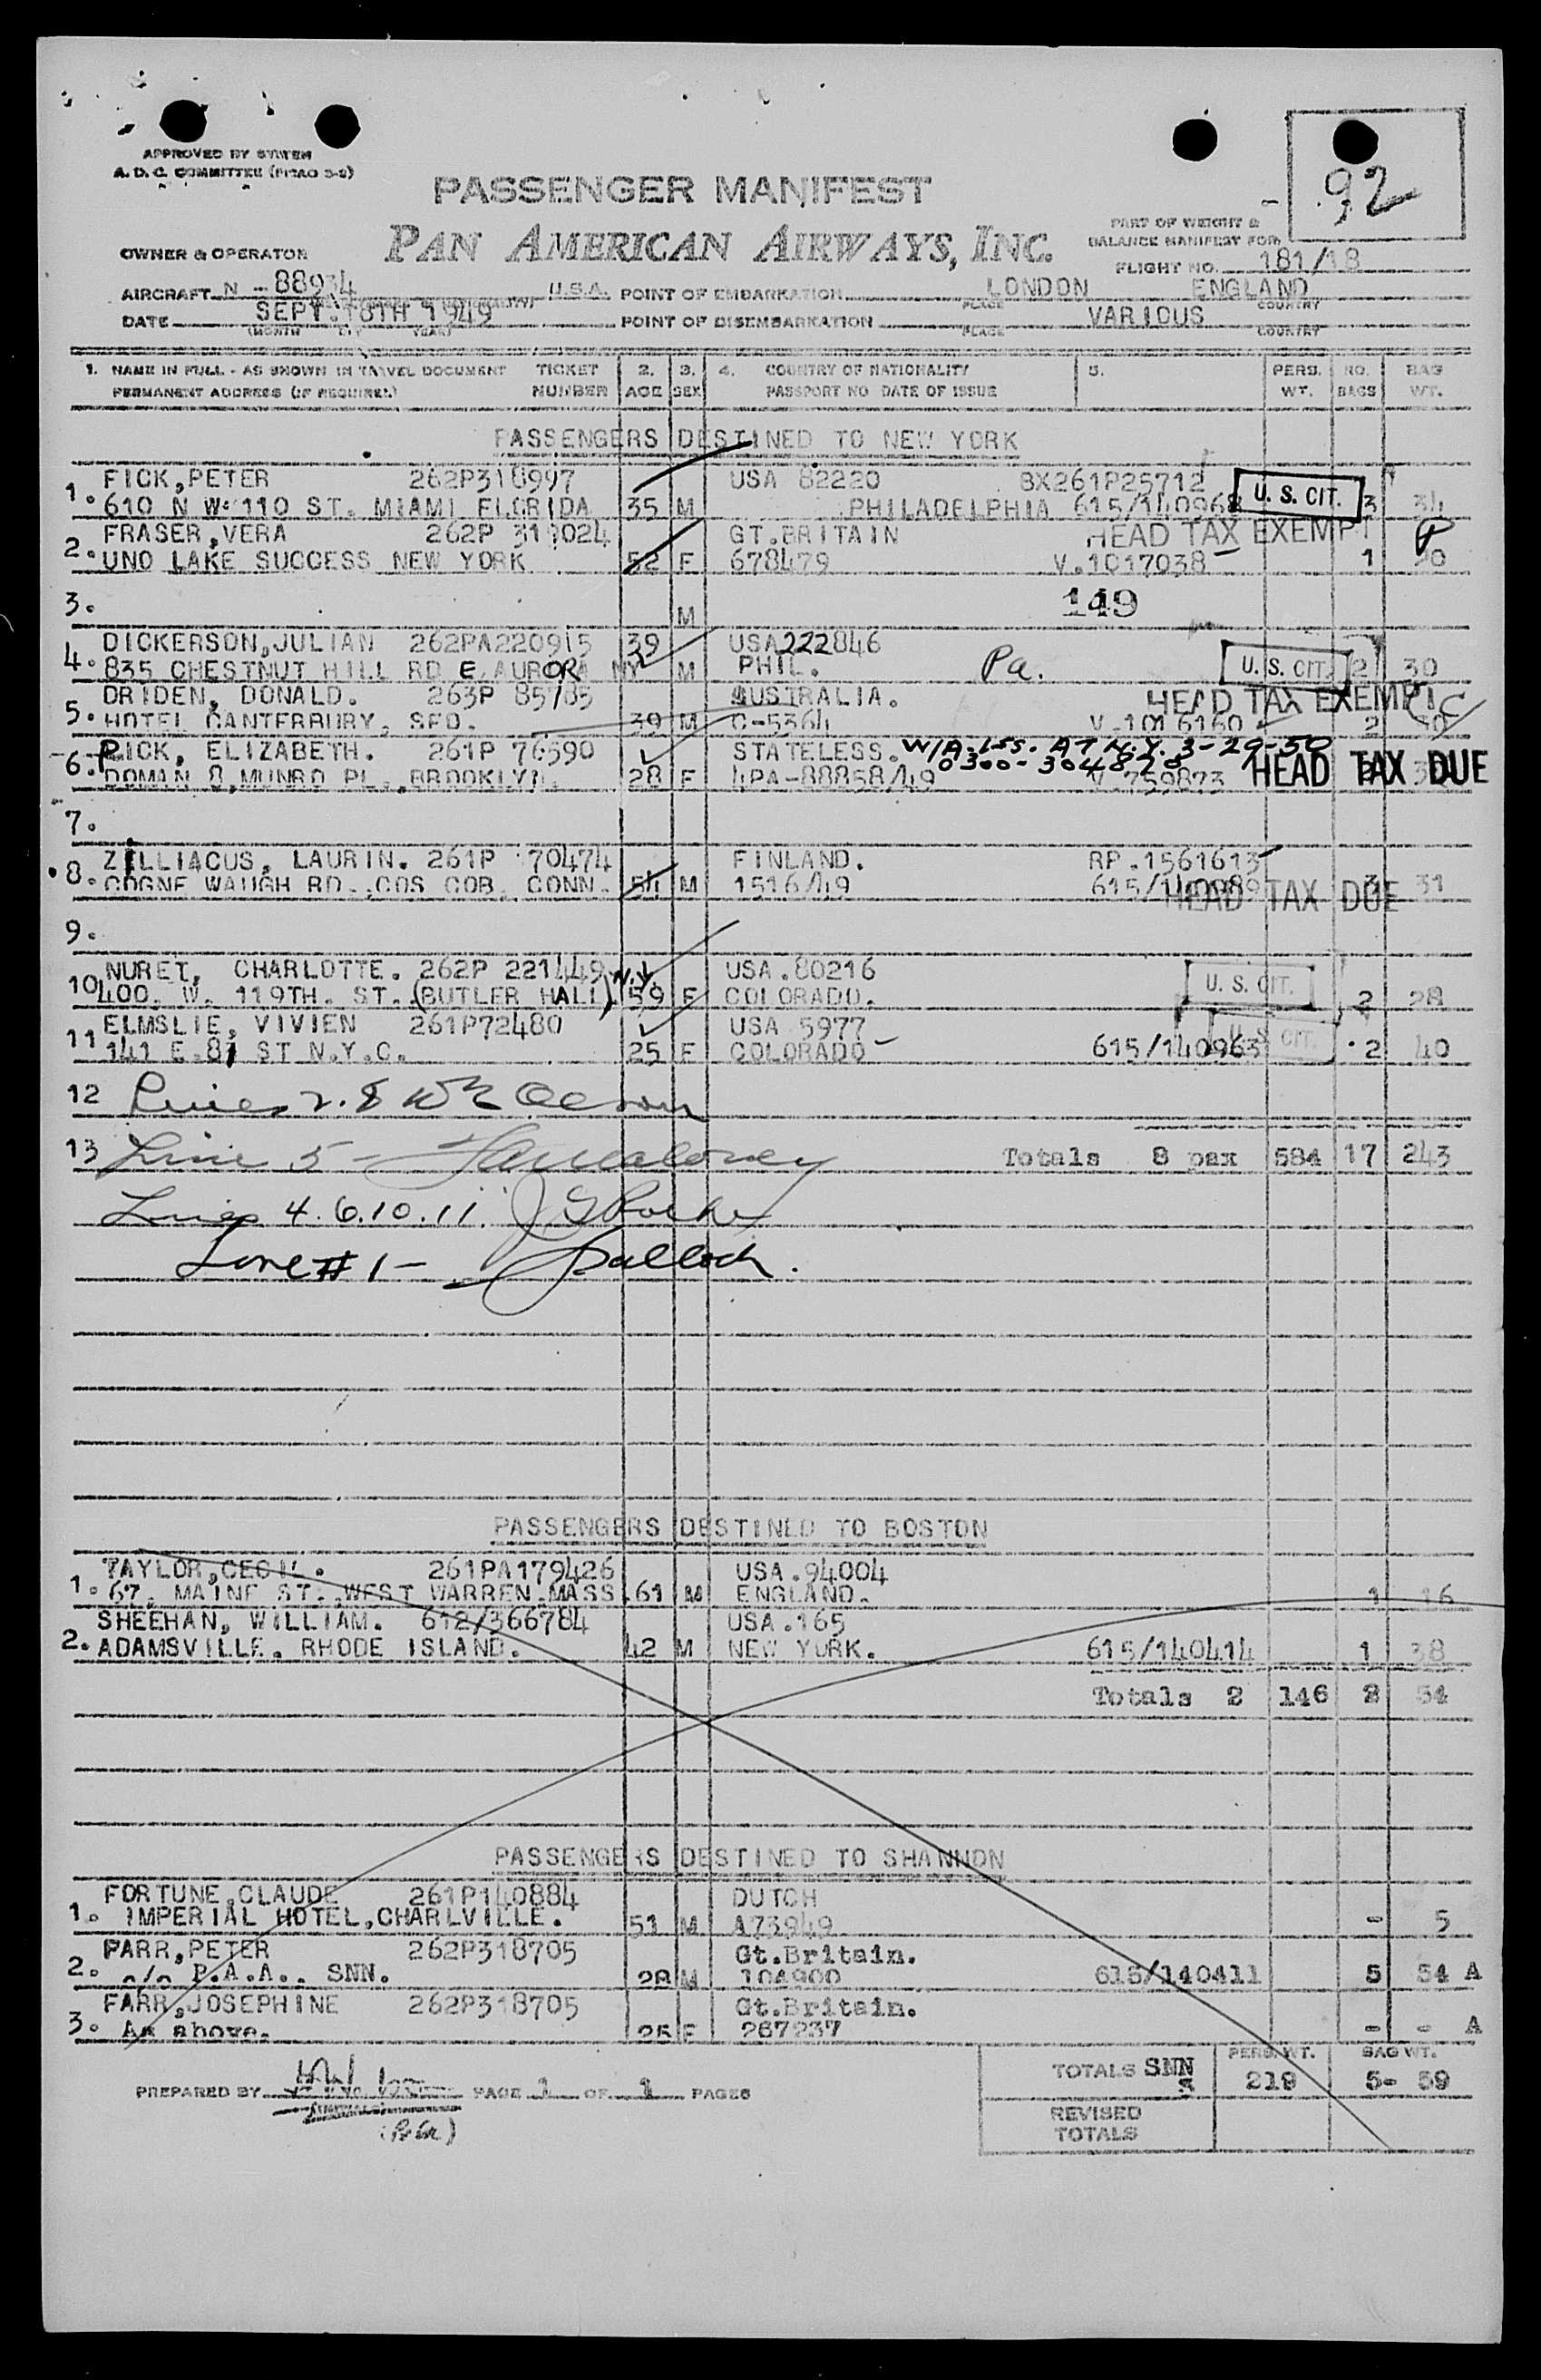 APPROVED BY SYSTEM
A. D. C. COMMITTEE (PITAO 3-2)
PASSENGER MANIFEST
92
PAN AMERICAN AIRWAYS, INC.
PART OF WEIGHT &
BALANCE MANIFEST FOR
OWNER & OPERATOR
FLIGHT NO. 181/18
AIRCRAFT N - 88934 U.S.A. POINT OF EMBARKATION LONDON ENGLAND
PLACE COUNTRY
DATE SEPT. 18TH 1949 POINT OF DISEMBARKATION VARIOUS
(MONTH YEAR) PLACE COUNTRY
1. NAME IN FULL - AS SHOWN IN TRAVEL DOCUMENT TICKET 2. 3. 4. COUNTRY OF NATIONALITY 5. PERS. NO. BAG
PERMANENT ADDRESS (IF REQUIRED) NUMBER AGE SEX PASSPORT NO DATE OF ISSUE WT. BAGS WT.
PASSENGERS DESTINED TO NEW YORK
FICK,PETER 262P318997 USA 82220 BX261P25712
1. 610 N W. 110 ST. MIAMI FLORIDA 35 M PHILADELPHIA 615/140968 U. S. CIT. 3 34
FRASER,VERA 262P 319024 GT.BRITAIN HEAD TAX EXEMPT
2. UNO LAKE SUCCESS NEW YORK 52 F 678479 V.1017038 1
3. M 149
DICKERSON,JULIAN 262PA220915 39 USA222846
4. 835 CHESTNUT HILL RD E. AURORA NY M PHIL. Pa. U. S. CIT. 2 30
DRIDEN, DONALD. 263P 85785 AUSTRALIA. HEAD TAX EXEMPT
5. HOTEL CANTERBURY, SFO. 39 M C-5364 V.1016160 2
6. PICK, ELIZABETH. 261P 76590 STATELESS. W/A.Iss. AT N.Y. 3-29-50
0300-304878
DOMAN 8,MUNRO PL., BROOKLYN. 28 F 4PA-88858/49 V.759873 HEAD TAX DUE
7.
ZILLIACUS, LAURIN. 261P 70474 FINLAND. RP.1561613
8. COGNE WAUGH RD., COS COB. CONN. 54 M 1516/49 615/140989 3 31
HEAD TAX DUE
9.
NURET, CHARLOTTE. 262P 221449 N.Y. USA.80216
10 400. W. 119TH. ST. (BUTLER HALL) 59 F COLORADO. U. S. CIT. 2 28
ELMSLIE, VIVIEN 261P72480 USA 5977
11 141 E.81 ST N.Y.C. 25 F COLORADO 615/140963 U. S. CIT. 2 40
12 Lines 2. 8
13 Line 5 - Totals 8 pax 584 17 243
Lines 4. 6. 10. 11.
Line # 1 -
PASSENGERS DESTINED TO BOSTON
TAYLOR,CECIL. 261PA179426 USA.94004
1. 67. MAINE ST. WEST WARREN.MASS. 61 M ENGLAND. 1 16
SHEEHAN, WILLIAM. 612/366784 USA.165
2. ADAMSVILLE. RHODE ISLAND. 42 M NEW YORK. 615/140414 1 38
Totals 2 146 2 54
PASSENGERS DESTINED TO SHANNON
FORTUNE,CLAUDE 261P140884 DUTCH
1. IMPERIAL HOTEL,CHARLVILLE. 51 M A73949 - 5
FARR,PETER 262P318705 Gt.Britain.
2. c/o P.A.A.. SNN. 28 M 104900 615/140411 5 54 A
FARR,JOSEPHINE 262P318705 Gt.Britain.
3. As above. 25 F 267237 - - A
TOTALS SNN PERS. WT. BAG WT.
219 5- 59
PREPARED BY PAGE 1 OF 1 PAGES
REVISED
TOTALS